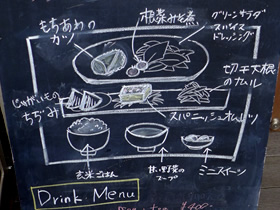 もちあわの
カツ
根菜みそ煮
グリーンサラダ
スパイス
ドレッシング
切干大根
のナムル
じゃがいもの
ちぢみ
スパニッシュオムレツ
玄米ごはん
甘い野菜の
スープ
ミニスイーツ
Drink Menu